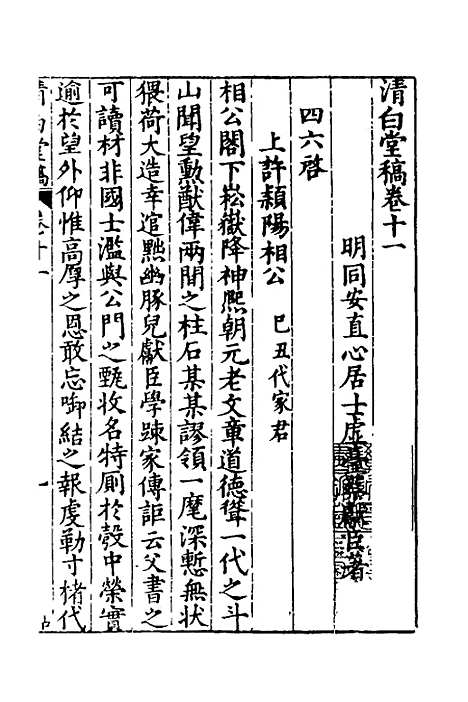 清白堂稿卷十一
明同安直心居士虛臺蔡獻臣著
四六啓
上許潁陽相公 己丑代家君
相公閣下崧嶽降神熈朝元老文章道德聳一代之斗
山聞望勳猷偉兩間之柱石某某謬領一麾深慙無狀
猥荷大造幸逭黜幽豚兒獻臣學踈家傳詎云父書之
可讀材非國士濫與公門之甄收名特厠於彀中榮實
逾於望外仰惟高厚之恩敢忘啣結之報虔勒寸楮代
清白堂稿 卷十一 一